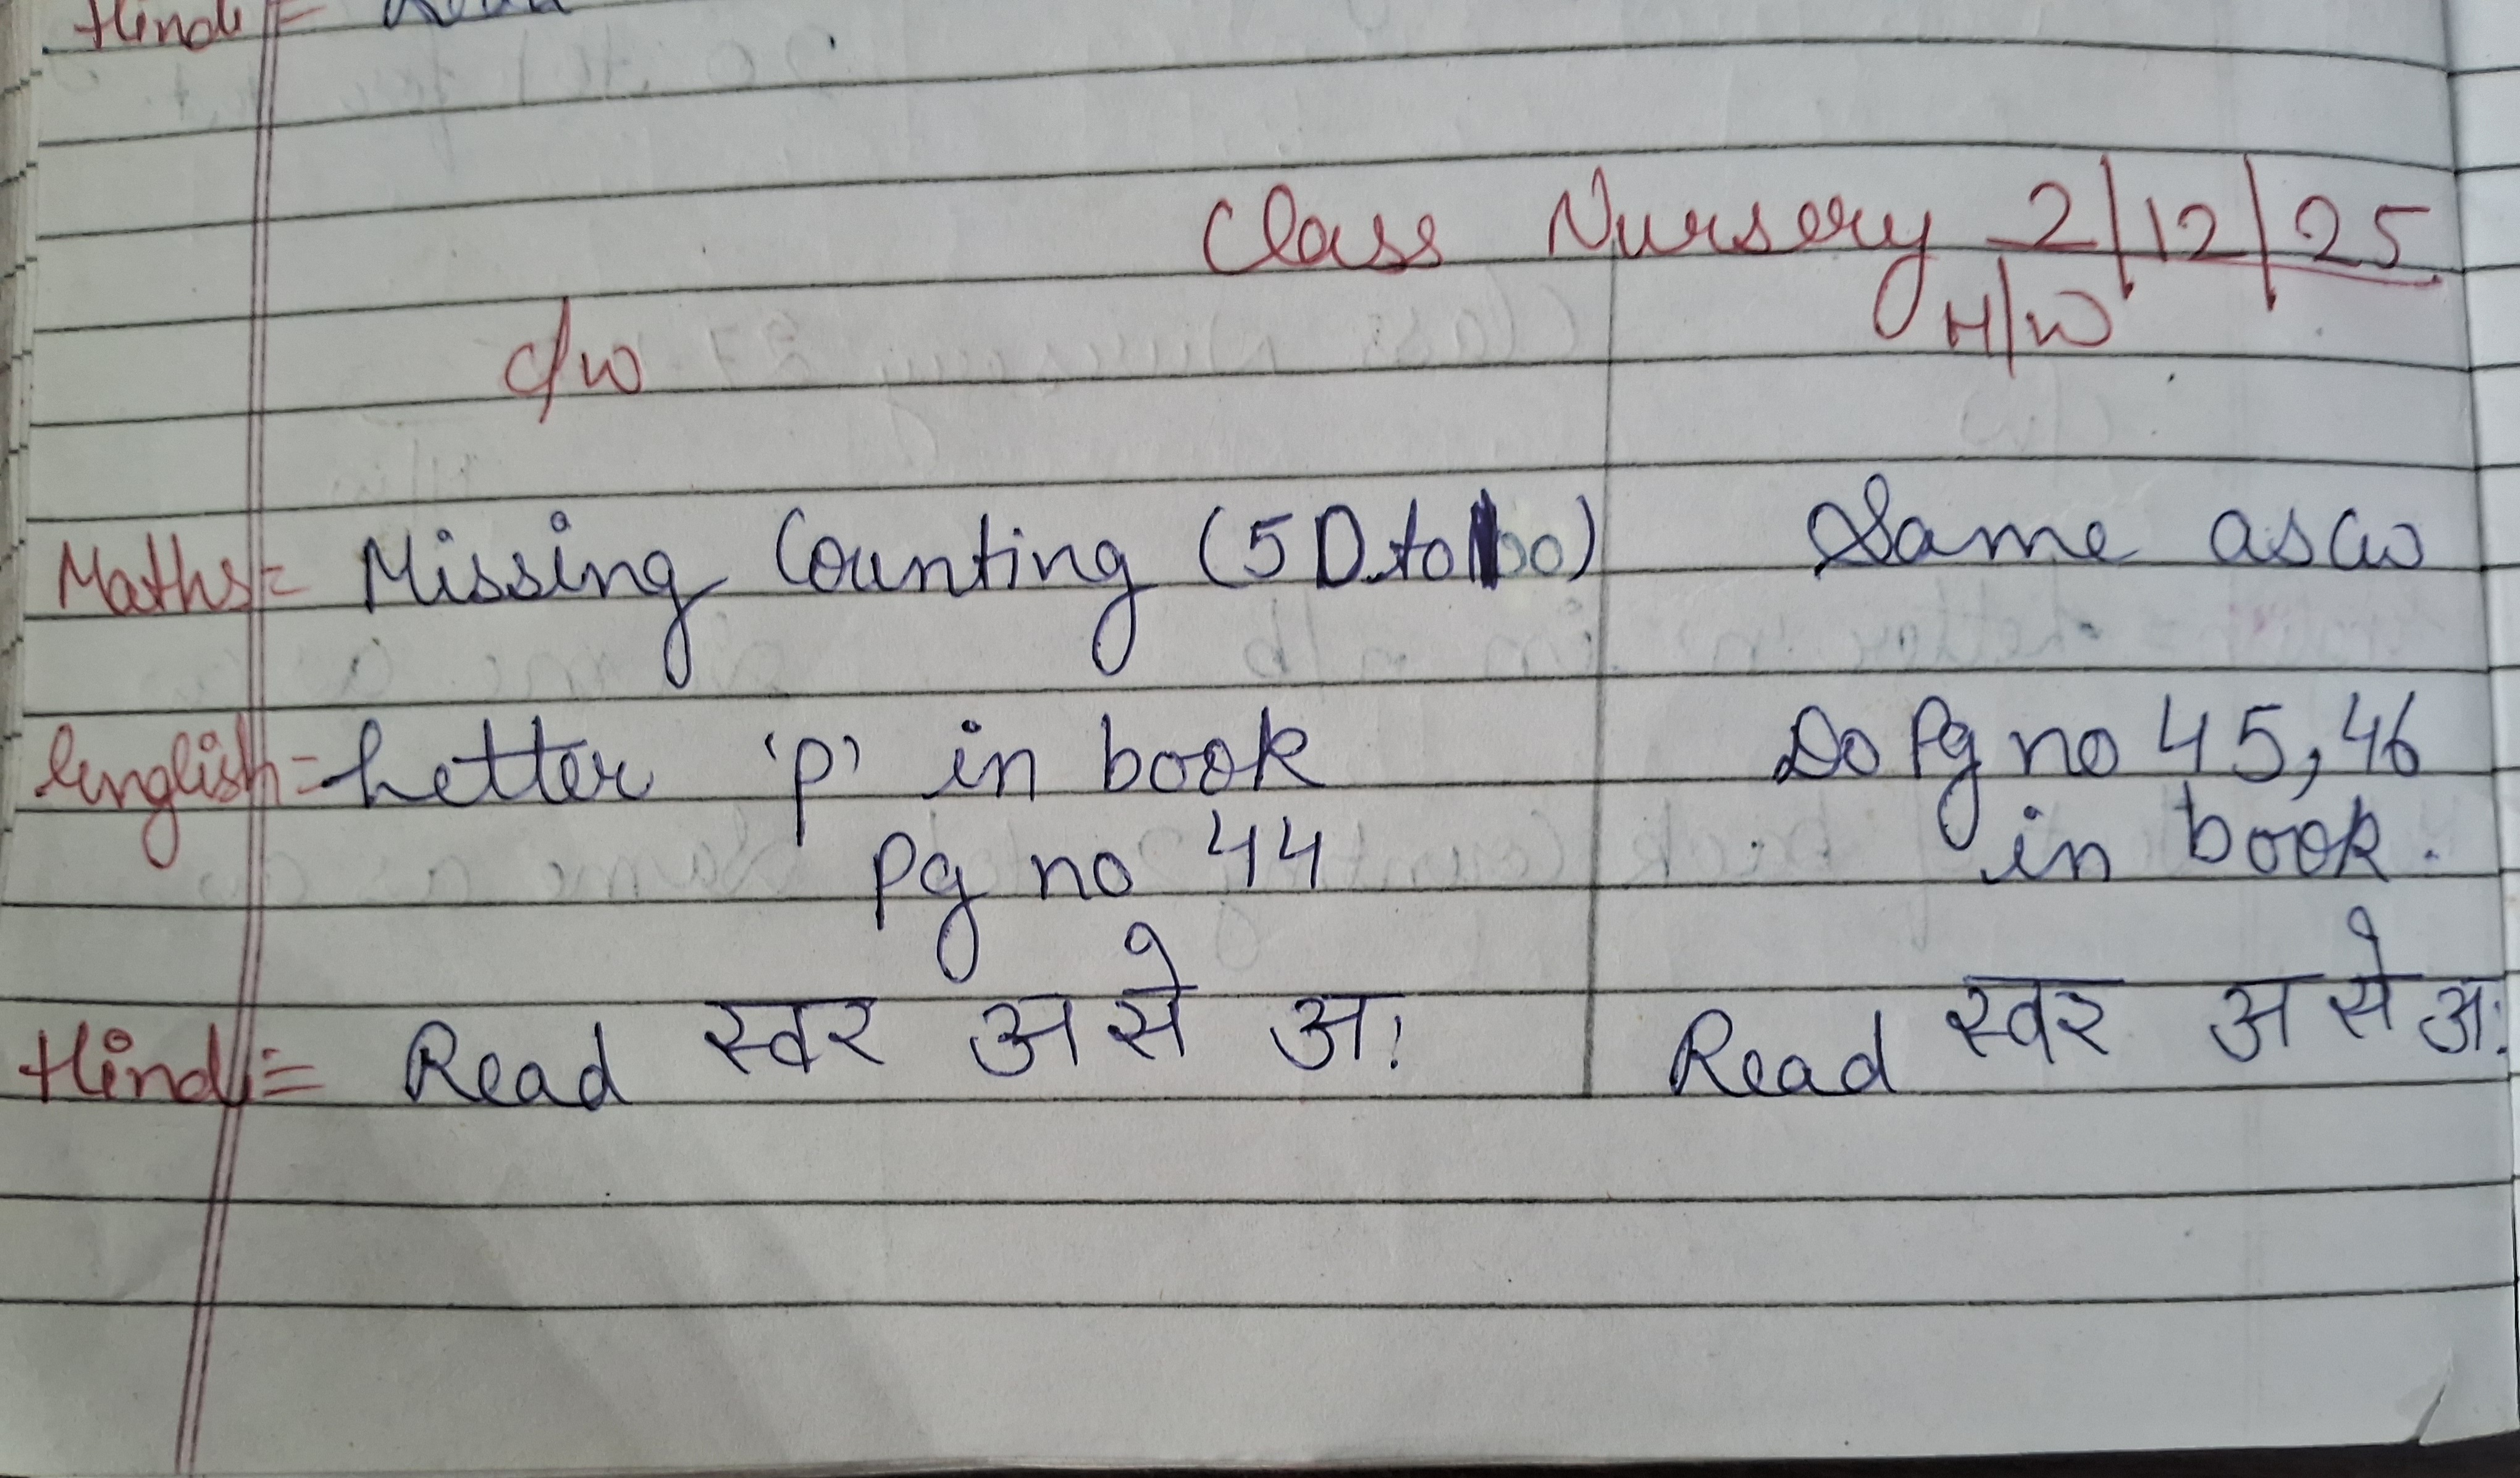 Hindi =
Class Nursery 2/12/25
c/w H/w
Maths = Missing Counting (50 to 100) Same as cw
English = Letter 'p' in book Do Pg no 45, 46
Pg no 44 in book.
Hindi = Read स्वर अ से अः Read स्वर अ से अः